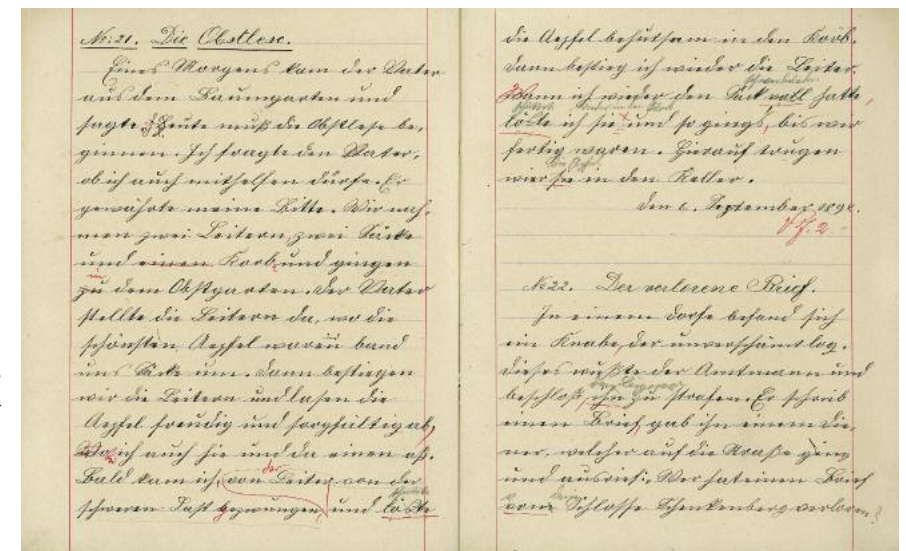 No: 21. Die Obstlese.
Eines Morgens kam der Vater
aus dem Baumgarten und
sagte: Heute muß die Obstlese be-
ginnen. Ich fragte den Vater,
ob ich auch mithelfen dürfe. Er
gewährte meine Bitte. Wir nah-
men zwei Leitern, zwei Säcke
und einen Korb und gingen
zu dem Obstgarten. Der Vater
stellte die Leitern da, wo die
schönsten Aepfel waren band
uns Säcke um. Dann bestiegen
wir die Leitern und lasen die
Aepfel freudig und sorgfältig ab,
ich auch hie und da einen aß.
Bald kam ich, von der Leiter von der
schweren Last gezwungen, und löste
die Aepfel behutsam in den Korb.
Dann bestieg ich wieder die Leiter.
Wann ich wieder den Sack voll hatte,
löste ich sie und so gings, bis wir
fertig waren. Hierauf trugen
wir sie in den Keller.
Den September
No 22. Der verlorene Brief.
In einem Dorfe befand sich
ein Knabe, der unverschämt log.
Dieses wußte der Amtmann und
beschloß, ihn zu strafen. Er schrieb
einen Brief, gab ihn einem Die-
ner, welcher auf die Straße ging
und ausrief: Wer hat einen Brief
vom Schlosse Schenkenberg verloren?